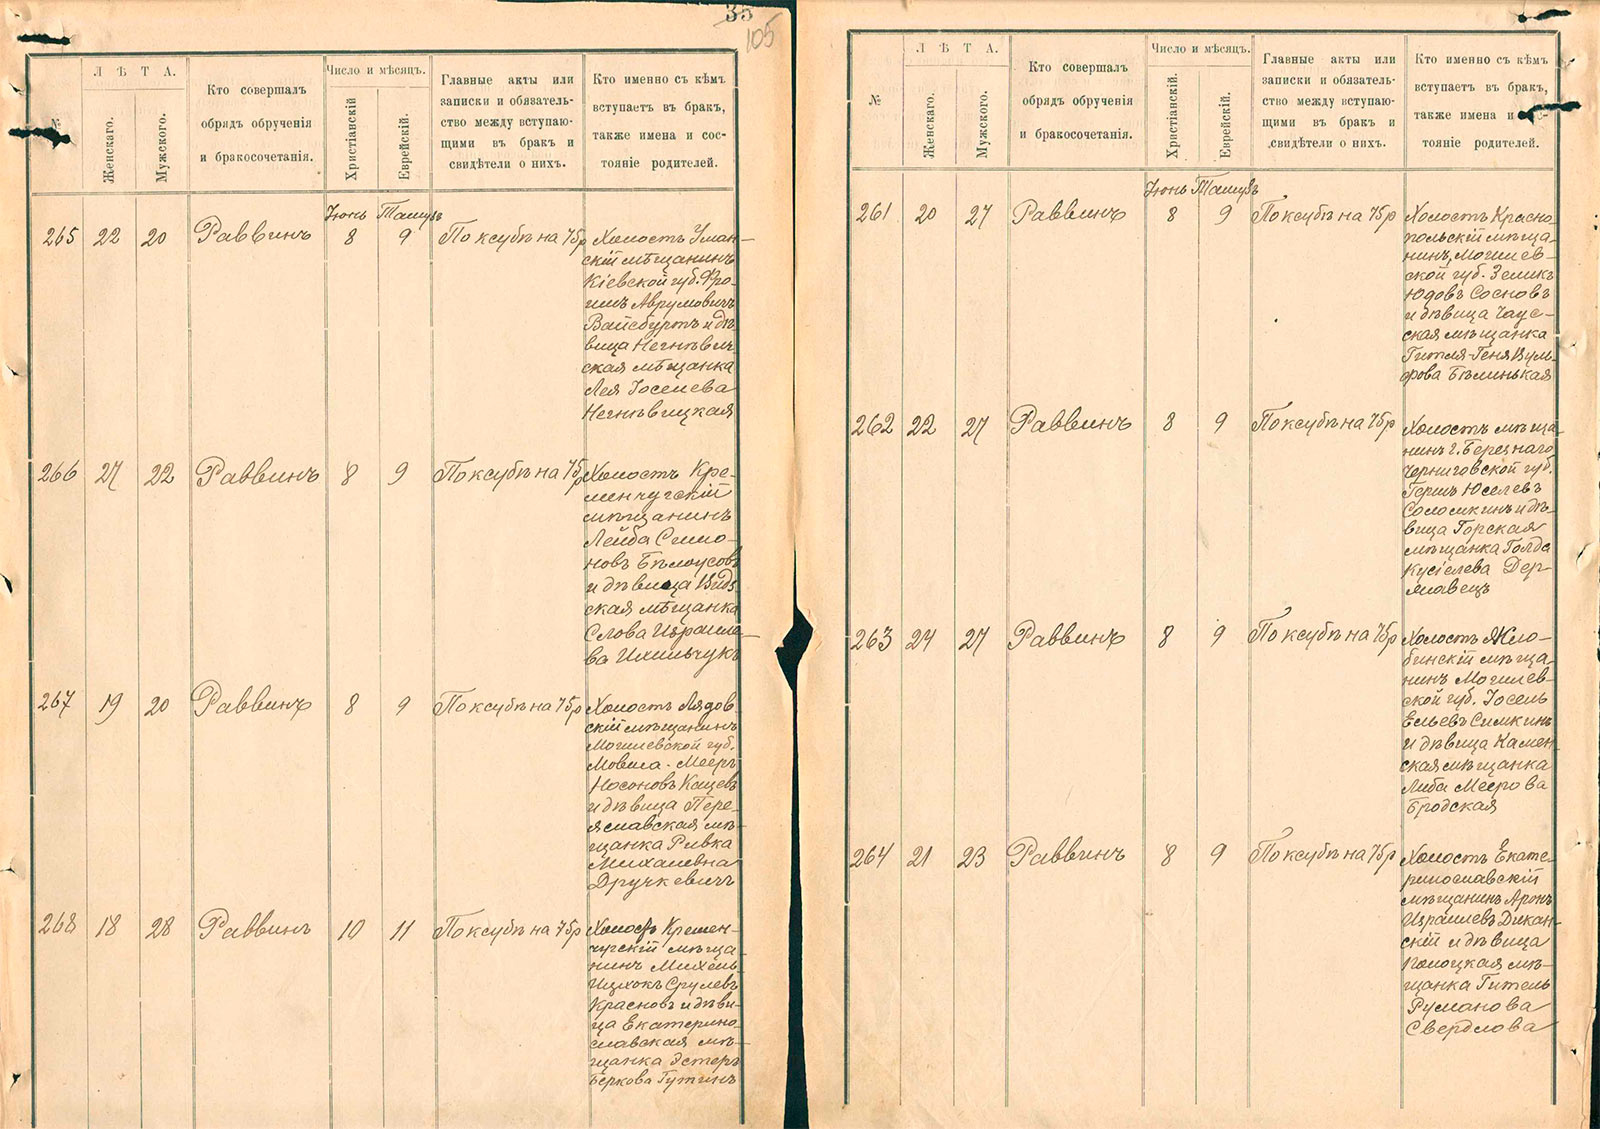 35
105
№
Л Ѣ Т А.
Женскаго.
Мужского.
Кто совершалъ
обрядъ обрученія
и бракосочетанія.
Число и мѣсяцъ.
Христіанскій
Еврейскій.
Главные акты или
записки и обязатель-
ство между вступаю-
щими въ бракъ и
свидѣтели о нихъ.
Кто именно съ кѣмъ
вступаетъ въ бракъ,
также имена и сос-
тояніе родителей.
Іюнь Тамузъ
265 22 20 Раввинъ 8 9 По ксубѣ на 75р
Холостъ Уман-
скій мѣщанинъ
Кіевской губ. Фро-
имъ Аврумовичъ
Вайсбуртъ и дѣ-
вица Негнѣвич-
ская мѣщанка
Лея Іоселева
Негнѣвицкая
266 27 22 Раввинъ 8 9 По ксубѣ на 75р
Холостъ Кре-
менчугскій
мѣщанинъ
Лейба Симо-
новъ Бѣлоусовъ
и дѣвица Видз-
ская мѣщанка
Слова Израиле-
ва Ихильчукъ
267 19 20 Раввинъ 8 9 По ксубѣ на 75р
Холостъ Лядов
скій мѣщанинъ
Могилевской губ.
Мовша-Мееръ
Носоновъ Кацевъ
и дѣвица Пере-
яславская мѣ-
щанка Ривка
Михалевна
Друкевичъ
268 18 28 Раввинъ 10 11 По ксубѣ на 75р
Холостъ Кремен-
чугскій мѣща-
нинъ Михель-
Ицхокъ Срулевъ
Красновъ и дѣви-
ца Екатерино-
славская мѣ-
щанка Эстеръ
Беркова Гутинъ
№
Л Ѣ Т А.
Женскаго.
Мужского.
Кто совершалъ
обрядъ обрученія
и бракосочетанія.
Число и мѣсяцъ.
Христіанскій.
Еврейскій.
Главные акты или
записки и обязатель-
ство между вступаю-
щими въ бракъ и
свидѣтели о нихъ.
Кто именно съ кѣмъ
вступаетъ въ бракъ,
также имена и сос-
тояніе родителей.
Іюнь Тамузъ
261 20 27 Раввинъ 8 9 По ксубѣ на 75р
Холостъ Красно
польскій мѣща-
нинъ, Могилев-
ской губ. Зеликъ
Юдовъ Сосновъ
и дѣвица Чаус-
ская мѣщанка
Гитля-Геня Вуль-
фова Бѣлинькая
262 22 27 Раввинъ 8 9 По ксубѣ на 75р
Холостъ мѣща-
нинъ г. Березнаго
Черниговской губ.
Гершъ Юселевъ
Соломкинъ и дѣ-
вица Горская
мѣщанка Голда
Кусіелева Дер-
жавецъ
263 24 27 Раввинъ 8 9 По ксубѣ на 75р
Холостъ Жло-
бинскій мѣща-
нинъ Могилев-
ской губ. Іосель
Ельевъ Симкинъ
и дѣвица Камен-
ская мѣщанка
Либа Меерова
Бродская
264 21 23 Раввинъ 8 9 По ксубѣ на 75р
Холостъ Екате-
ринославскій
мѣщанинъ Аронъ
Израилевъ Дикан-
скій и дѣвица
Полоцкая мѣ-
щанка Гитель
Руманова
Свердлова